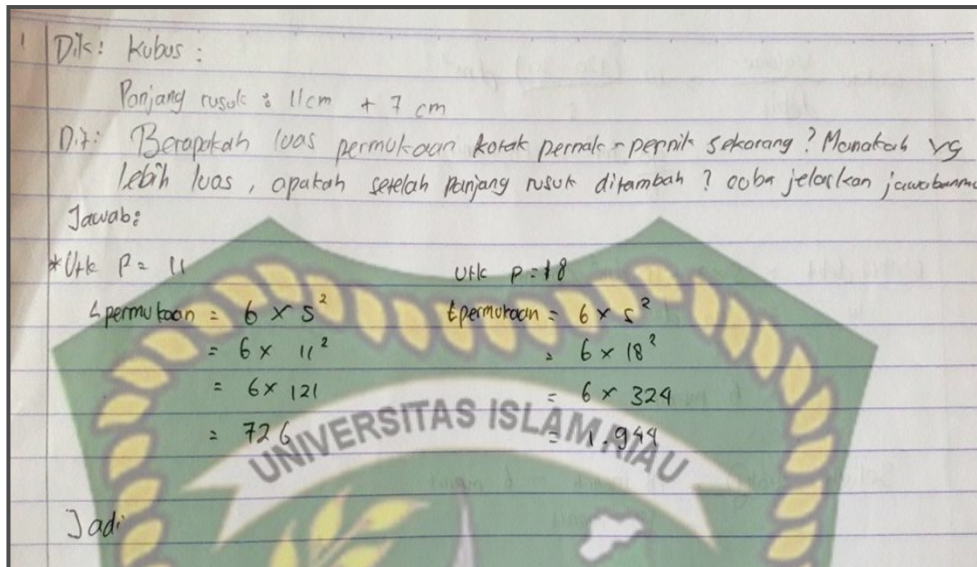 1 Dik: Kubus :
Panjang rusuk : 11 cm + 7 cm
Dit: Berapakah luas permukaan kotak pernak-pernik sekarang? Manakah yg
lebih luas, apakah setelah panjang rusuk ditambah? coba jelaskan jawabanmu
Jawab:
*Utk P = 11
L permukaan = 6 × s²
= 6 × 11²
= 6 × 121
= 726
Utk P = 18
L permukaan = 6 × s²
= 6 × 18²
= 6 × 324
= 1.944
Jadi
UNIVERSITAS ISLAM RIAU